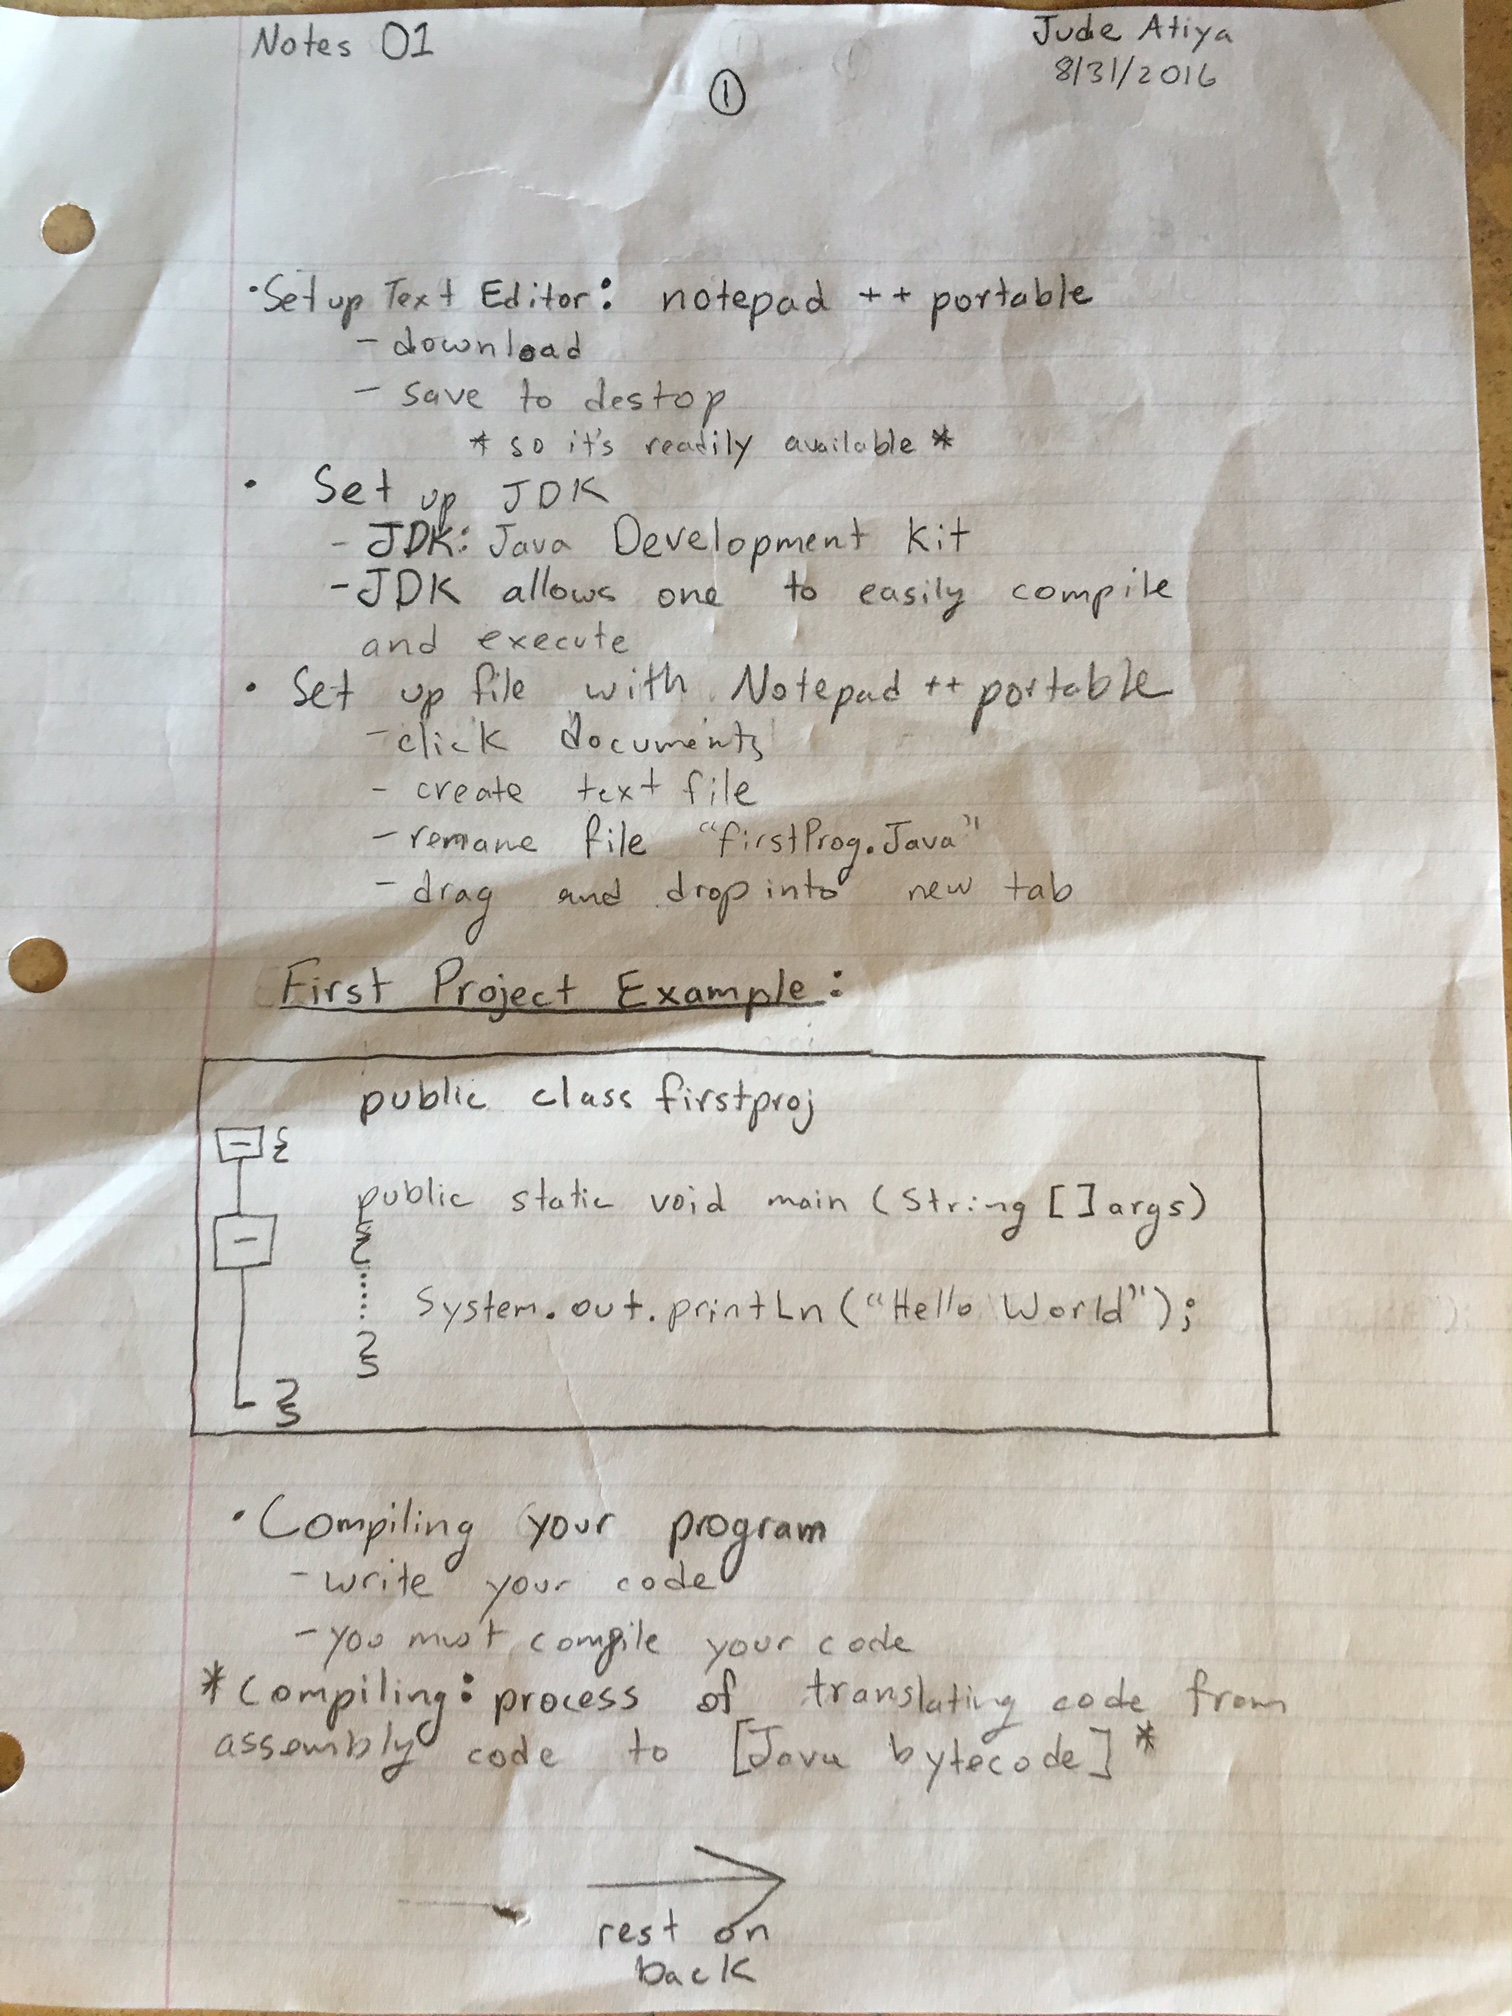 Notes 01
Jude Atiya
8/31/2016
1
• Set up Text Editor: notepad ++ portable
- download
- save to destop
* so it's readily available *
• Set up JDK
- JDK: Java Development Kit
- JDK allows one to easily compile
and execute
• Set up file with Notepad ++ portable
- click documents
- create text file
- remane file "firstProg.Java"
- drag and drop into new tab
First Project Example:
public class firstproj
{
public static void main (String [] args)
{
System.out.printLn ("Hello World");
}
}
• Compiling your program
- write your code
- you must compile your code
* Compiling: process of translating code from
assembly code to [Java bytecode] *
rest on
back